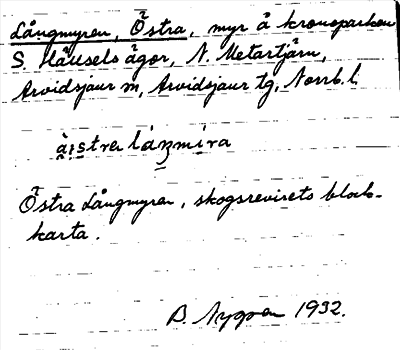 Långmyren, Östra, myr å kronoparken
S. Häusels ägor, N. Metartjärn,
Arvidsjaur sn, Arvidsjaur tg, Norrb. l.
Östra Långmyren, skogsrevirets block-
karta.
B. Nygren 1932.